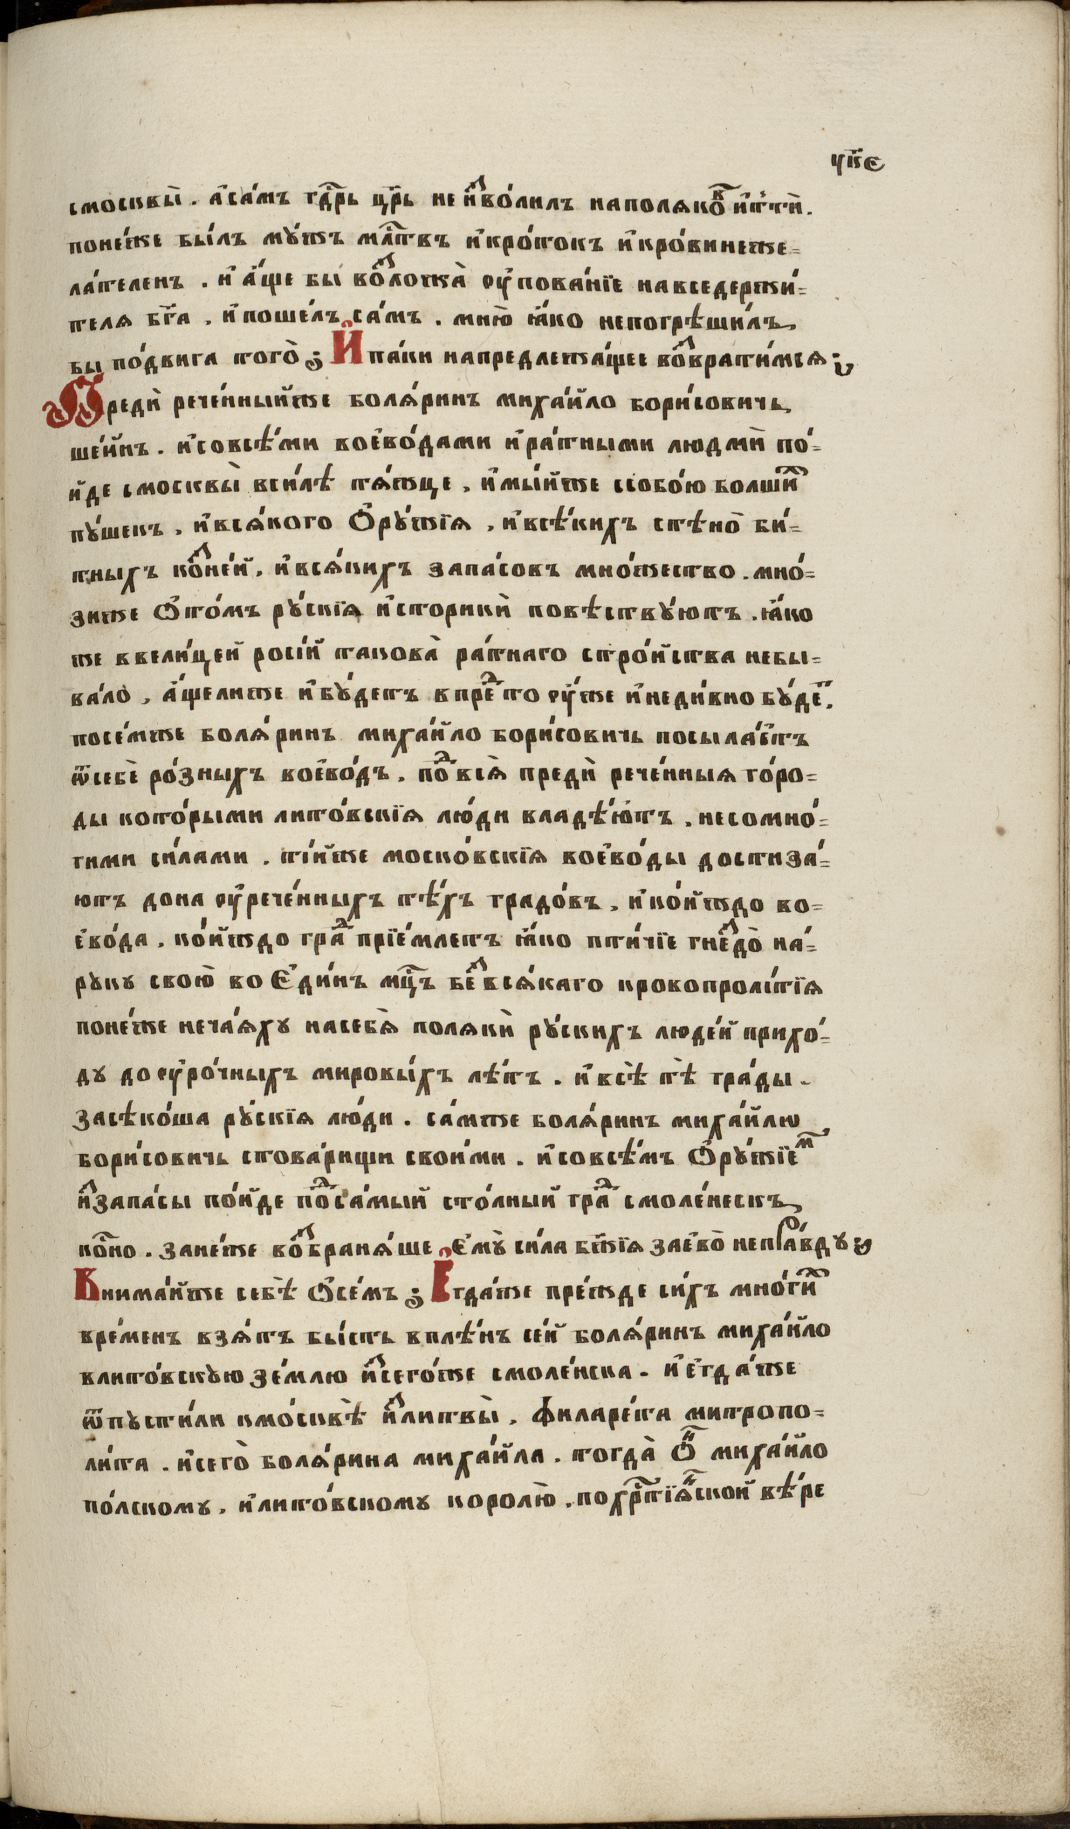 ц҃к҃є
смосквы̀ . а҆са́мъ гдⷭ҇рь цр҃ь не и҆ꙁво́лилъ наполяко́въ и҆ттѝ .
поне́же бы́лъ му́жъ млⷭ҇тивъ и҆кро́токъ и҆кро́винеже=
ла́теленъ . и҆ а́ще бы воꙁложѝ ᲂу҆пова́нїе навседержи́=
теля бг҃а , и҆пошелъ са́мъ . мню̀ ꙗ҆́ко непогрѣши́лъ
бы по́двига того̀ ; И҆ па́ки напредлежа́щее воꙁврати́мся :
Предѝ рече́нныйже боля́ринъ миха́йло бори́совичь
ше́йнъ . и҆совсѣ́ми воево́дами и҆ра́тными людмѝ по́=
йде смосквы̀ всѝлѣ тя́жце , и҆мы́йже ссобо́ю болши́хъ
пу́шекъ , и҆вся́кого Ѻ҆ру́жїя , и҆всѣ́кихъ стѣно̀ би́=
тныхъ коꙁне́й , и҆вся́кихъ запа́совъ мно́жество . мно́=
зиже Ѻ҆то́мъ ру́скїя и҆стори́ки повѣству́ютъ . ꙗ҆́ко
же ввели́цей росі́й такова̀ ра́тнаго стро́йства небы=
ва́ло , а҆́щелиже и҆бу́детъ впре́дъ то ᲂу҆́же и҆неди́вно бу́детъ ,
посе́мже боля́ринъ миха́йло бори́совичь посыла́етъ
ѿсебѐ ро́зныхъ воево́дъ , подъ вся̀ предѝ рече́нныя го́ро=
ды кото́рыми лито́вскїя лю́ди владѣ́ютъ , несомно́=
гими си́лами , ті́йже моско́вскїя воево́ды достиза́=
ютъ дона ᲂу҆рече́нныхъ тѣ́хъ градо́въ , и҆ко́йждо во=
ево́да , ко́йждо гра́дъ прїе́млетъ ꙗ҆́ко пти́чїе гнеꙁдо̀ на́=
руку свою̀ во Е҆ди́нъ мцⷭ҇ъ беꙁ вся́каго кровопролі́тїя
поне́же неча́яху насебя̀ полякѝ ру́скихъ люде́й прихо́=
ду до ᲂу҆ро́чныхъ мировы́хъ лѣ́тъ . и҆всѣ̀ тѣ̀ гра́ды .
засѣко́ша ру́скїя лю́ди . са́мже боля́ринъ миха́йлю
бори́совичь стова́рищи свои́ми . и҆совсѣ́мъ Ѻ҆ру́жїемъ
и҆ꙁапа́сы по́йде подъ са́мый сто́лный гра́дъ смоле́нескъ
но̀но . зане́же воꙁбраня́ше є҆му̀ си́ла бж҃їя заево̀ непра́вду ;
Внима́йже себѣ̀ Ѻ҆се́мъ ; Е҆гда́же пре́жде си́хъ мно́гихъ
вре́менъ взя́тъ бы́сть вплѣ́нъ се́й боля́ринъ миха́йло
влито́вскую зе́млю и҆ꙁ сего́же смоле́нска . и҆егда́же
ѿпусти́ли кмо́сквѣ и҆ꙁ литвы̀ , филаре́та митропо=
ли́та . и҆сего̀ боля́рина миха́йла . тогда̀ Ѻ҆нъ миха́йло
по́лскому , и҆лито́вскому королю̀ , похрⷭ҇тїя́нской вѣ́ре